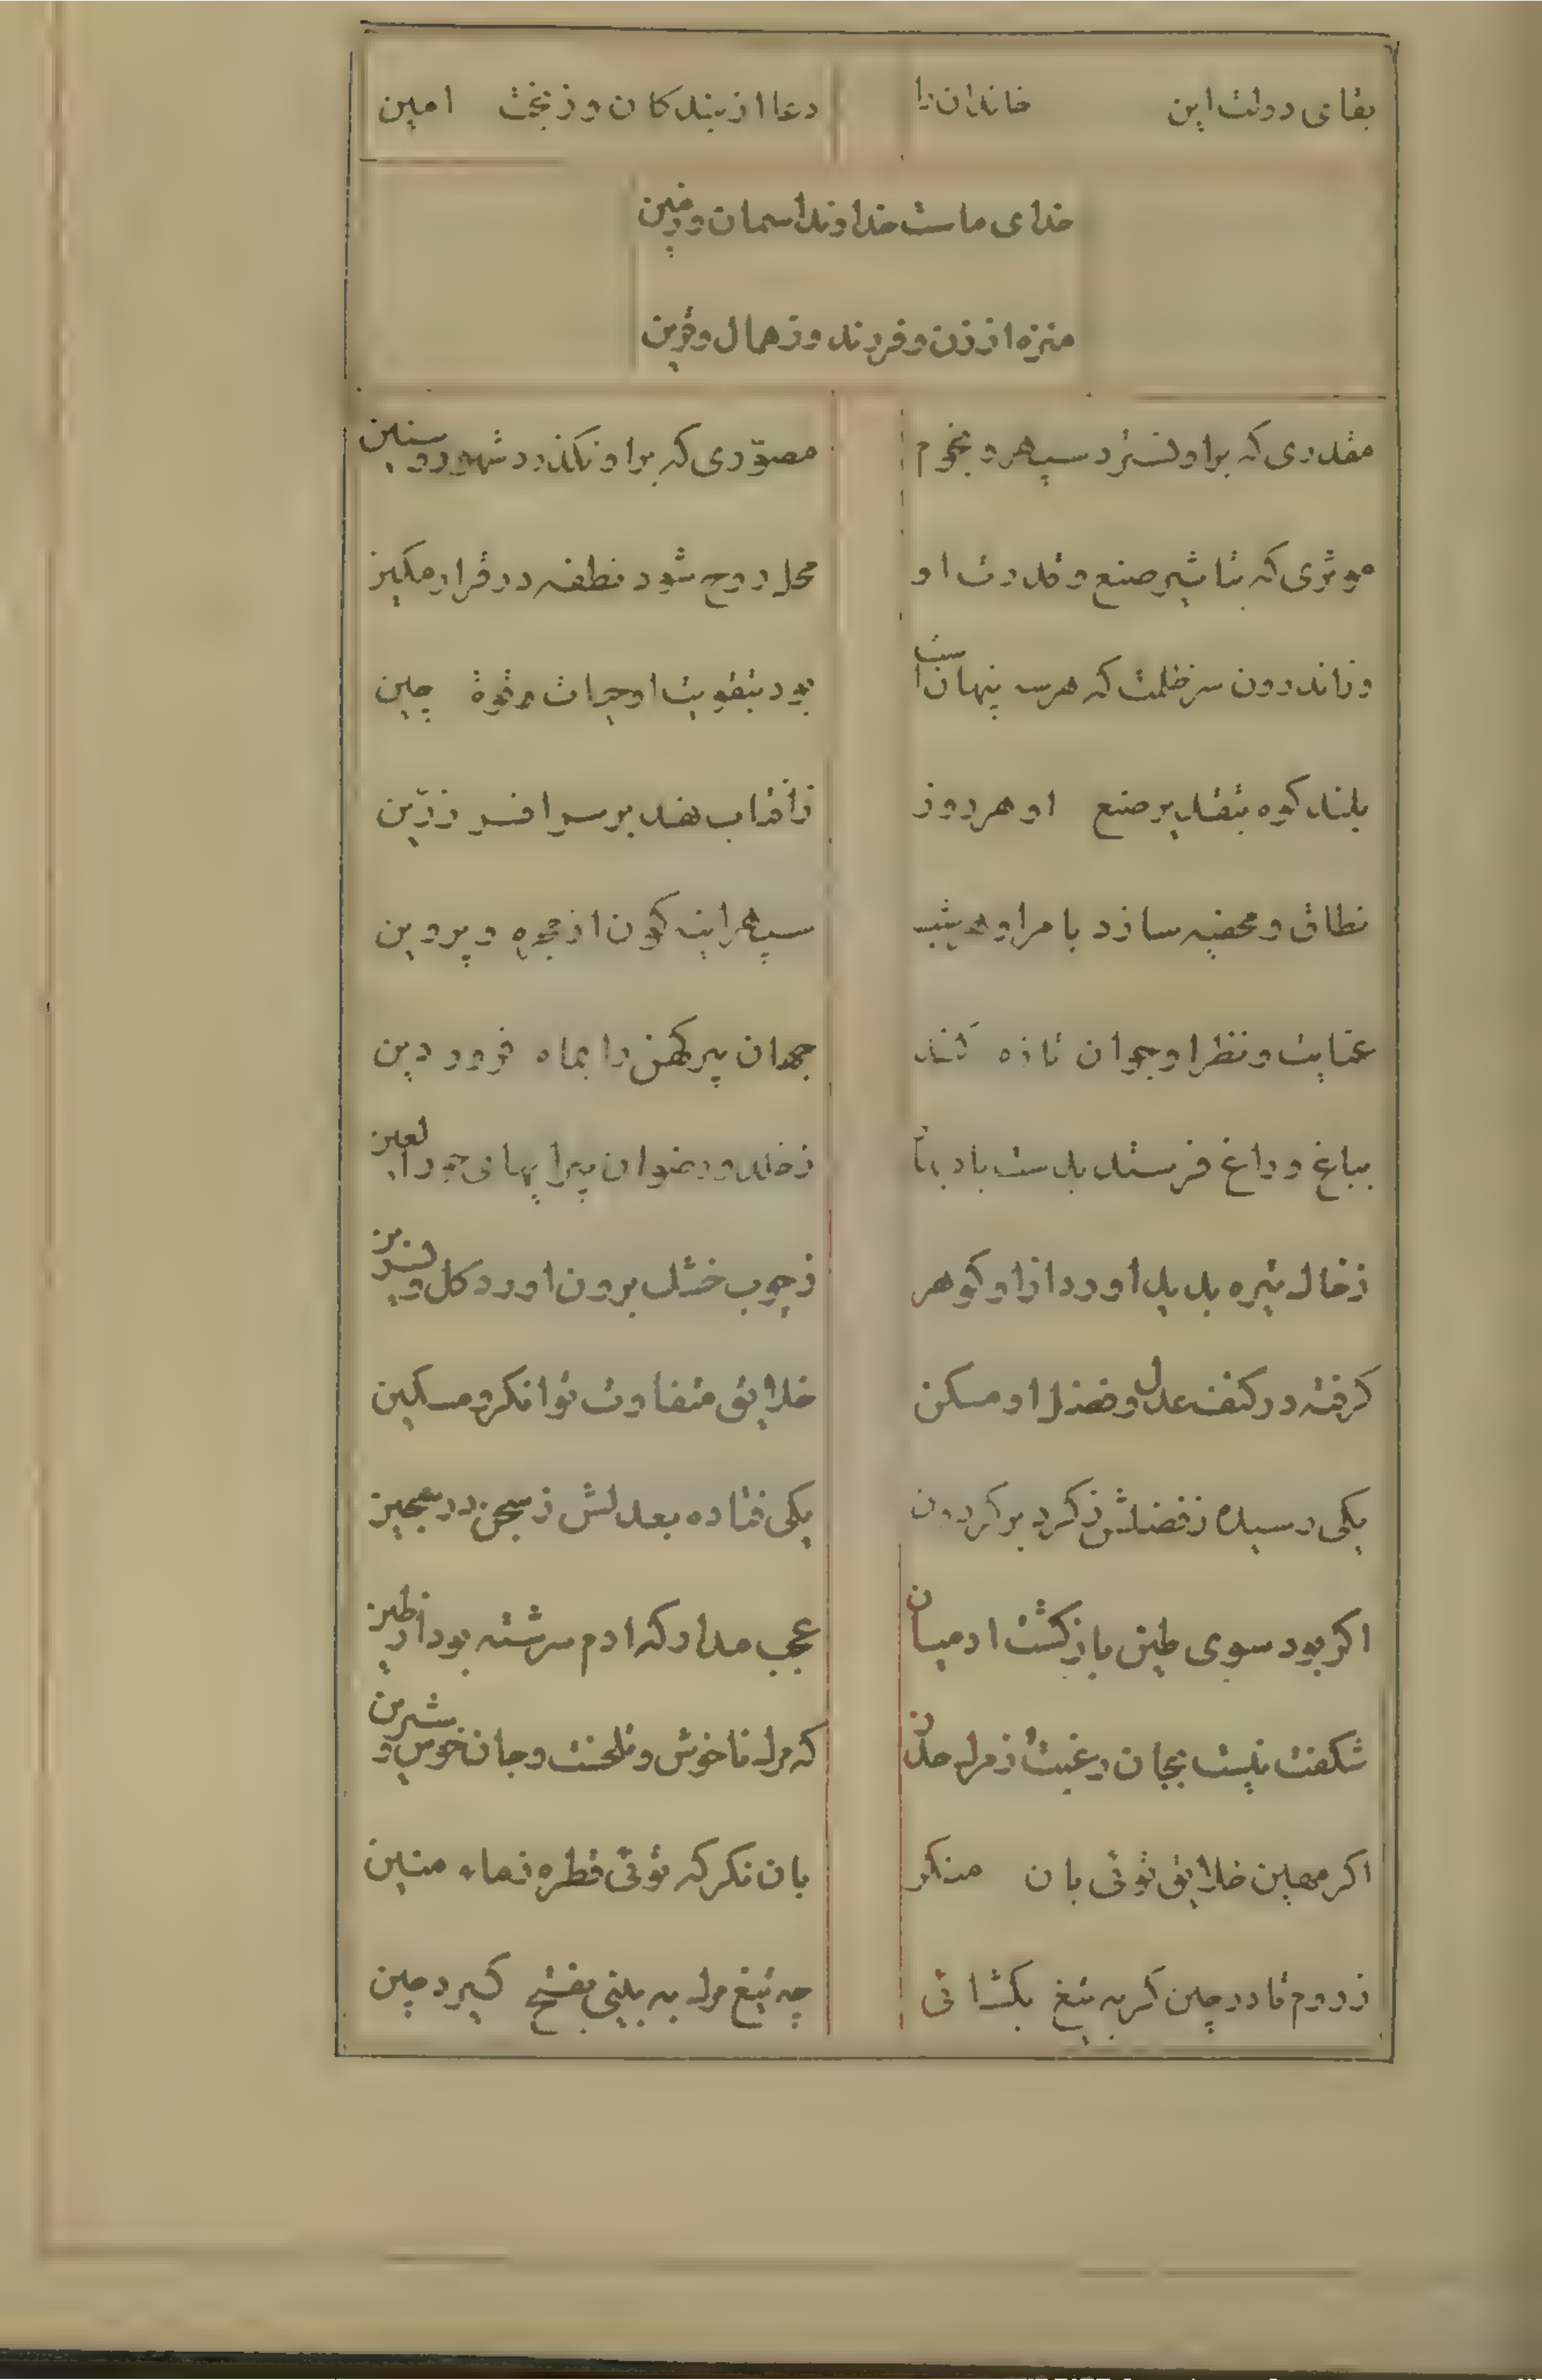 بقای دولت این خاندان را دعا از بندکان و ز بخت امین
خدای ماست خداوند اسمان و زمین
منزه از زن و فرزند و ز همال و قرین
مقدری که بر او نسترد سپهر و نجوم مصوّری که بر او نکذرد شهور و سنین
موثری که بتاثیر صنع و قدرت او محل روح شود نطفه در قرار مکین
وز اندرون سر ظلمت که هر سه پنهانست بود بتقویت او حیات و قوة جنین
بلند کوه بتقدیر صنع او هر روز ز آفتاب نهد بر سر افسر زرّین
نطاق و مخنقه سازد بامر او هر شب سپهر اینه کون از مجره و پروین
عنایت و نظر او جوان تازه کند جهان پیر کهن را بماه فروردین
بباغ و راغ فرستد بدست باد ز خلد و رضوان پیرایهای حور العین
ز خاک تیره پدید اورد از او کوهر ز چوب خشک برون اورد کل و نسرین
کرفته در کنف عدل و فضل او مسکن خلایق متفاوت توانکر و مسکین
یکی رسیده ز فضلش ز کرد بر کردون یکی فتاده بعدلش ز سجن در سجین
اکر بود سوی طین بازکشت ادمیان عجب مدار که ادم سرشته بود از طین
شکفت نیست بجان رغبت و ز مرک حذر که مرک ناخوش و تلخست و جان خوش و شیرین
اکر مهین خلایق توئی بان منکر بان نکر که توئی قطره ز ماء مهین
ز روم تا در چین کر به تیغ بکشائی چه تیغ مرک به بینی بفتح کیر و چین